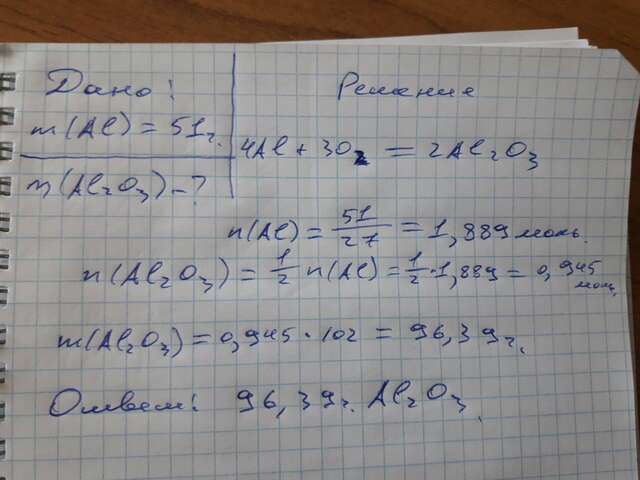 Дано:
m(Al) = 51г.
m(Al₂O₃) - ?
Решение
4Al + 3O₂ = 2Al₂O₃
n(Al) = 51/27 = 1,889 моль.
n(Al₂O₃) = 1/2 n(Al) = 1/2 · 1,889 = 0,945 моль.
m(Al₂O₃) = 0,945 · 102 = 96,39г.
Ответ: 96,39г. Al₂O₃.